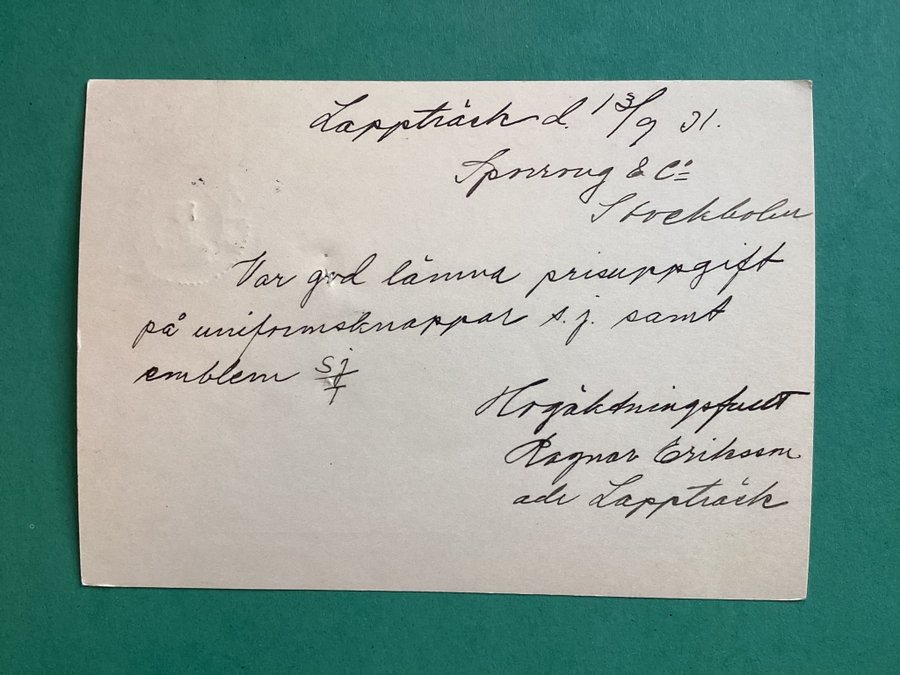 Lappträsk d. 13/9 31.
Sporrong & Co
Stockholm
Var god lämna prisuppgift
på uniformsknappar s.j. samt
emblem sj
Högaktningsfullt
Ragnar Eriksson
adr Lappträsk